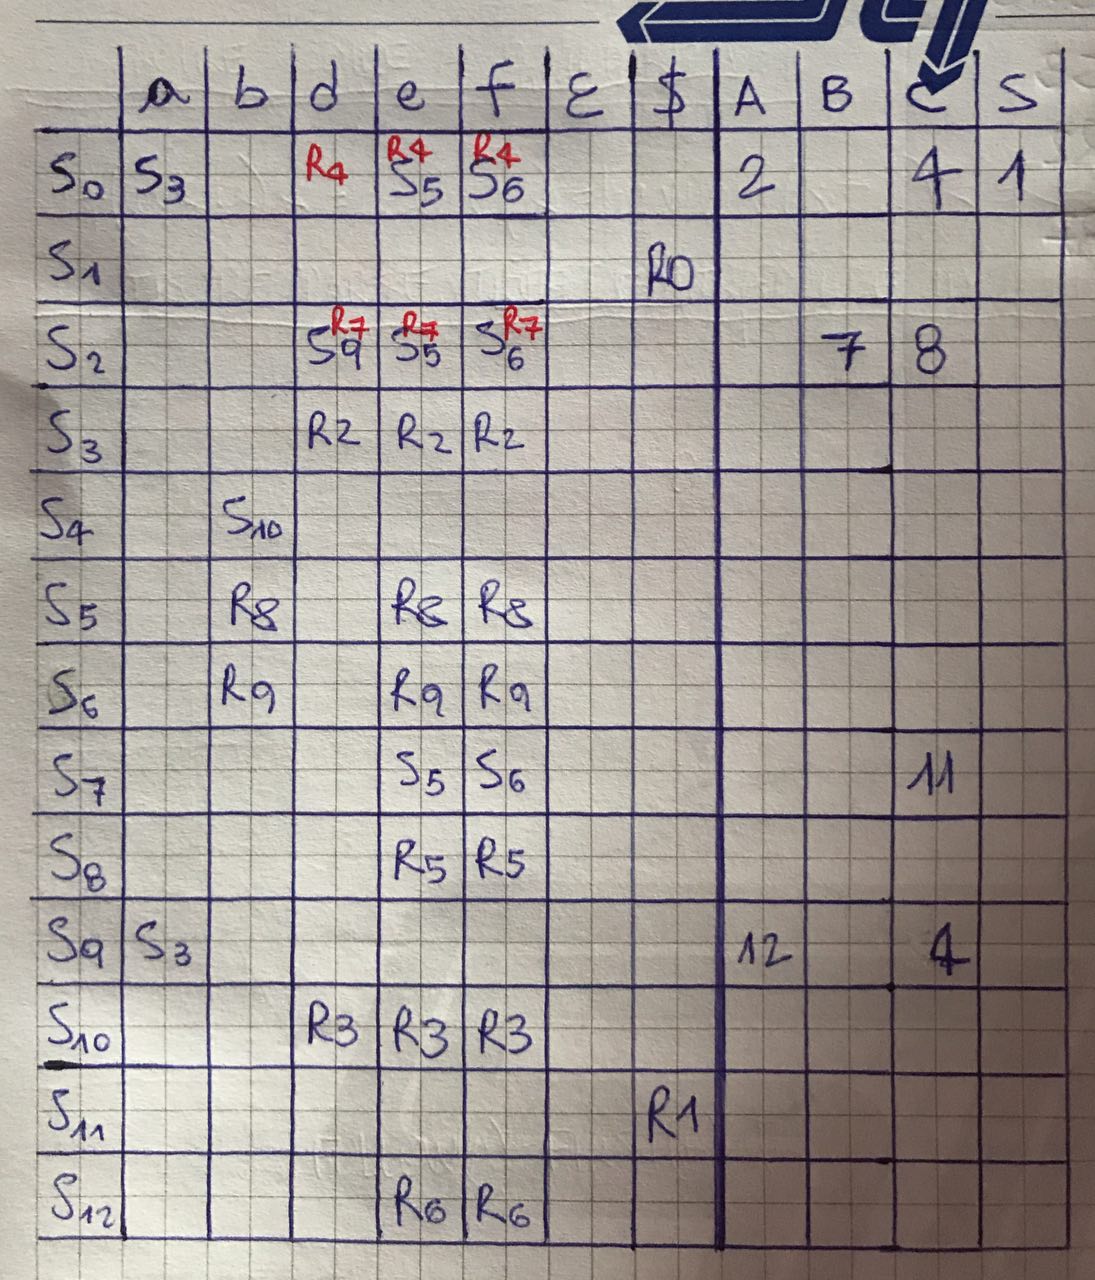 a b d e f ε $ A B C S
S0 S3 R4 R4 S5 R4 S6 2 4 1
S1 R0
S2 S9 R7 S5 R7 S6 R7 7 8
S3 R2 R2 R2
S4 S10
S5 R8 R8 R8
S6 R9 R9 R9
S7 S5 S6 11
S8 R5 R5
S9 S3 12 4
S10 R3 R3 R3
S11 R1
S12 R6 R6